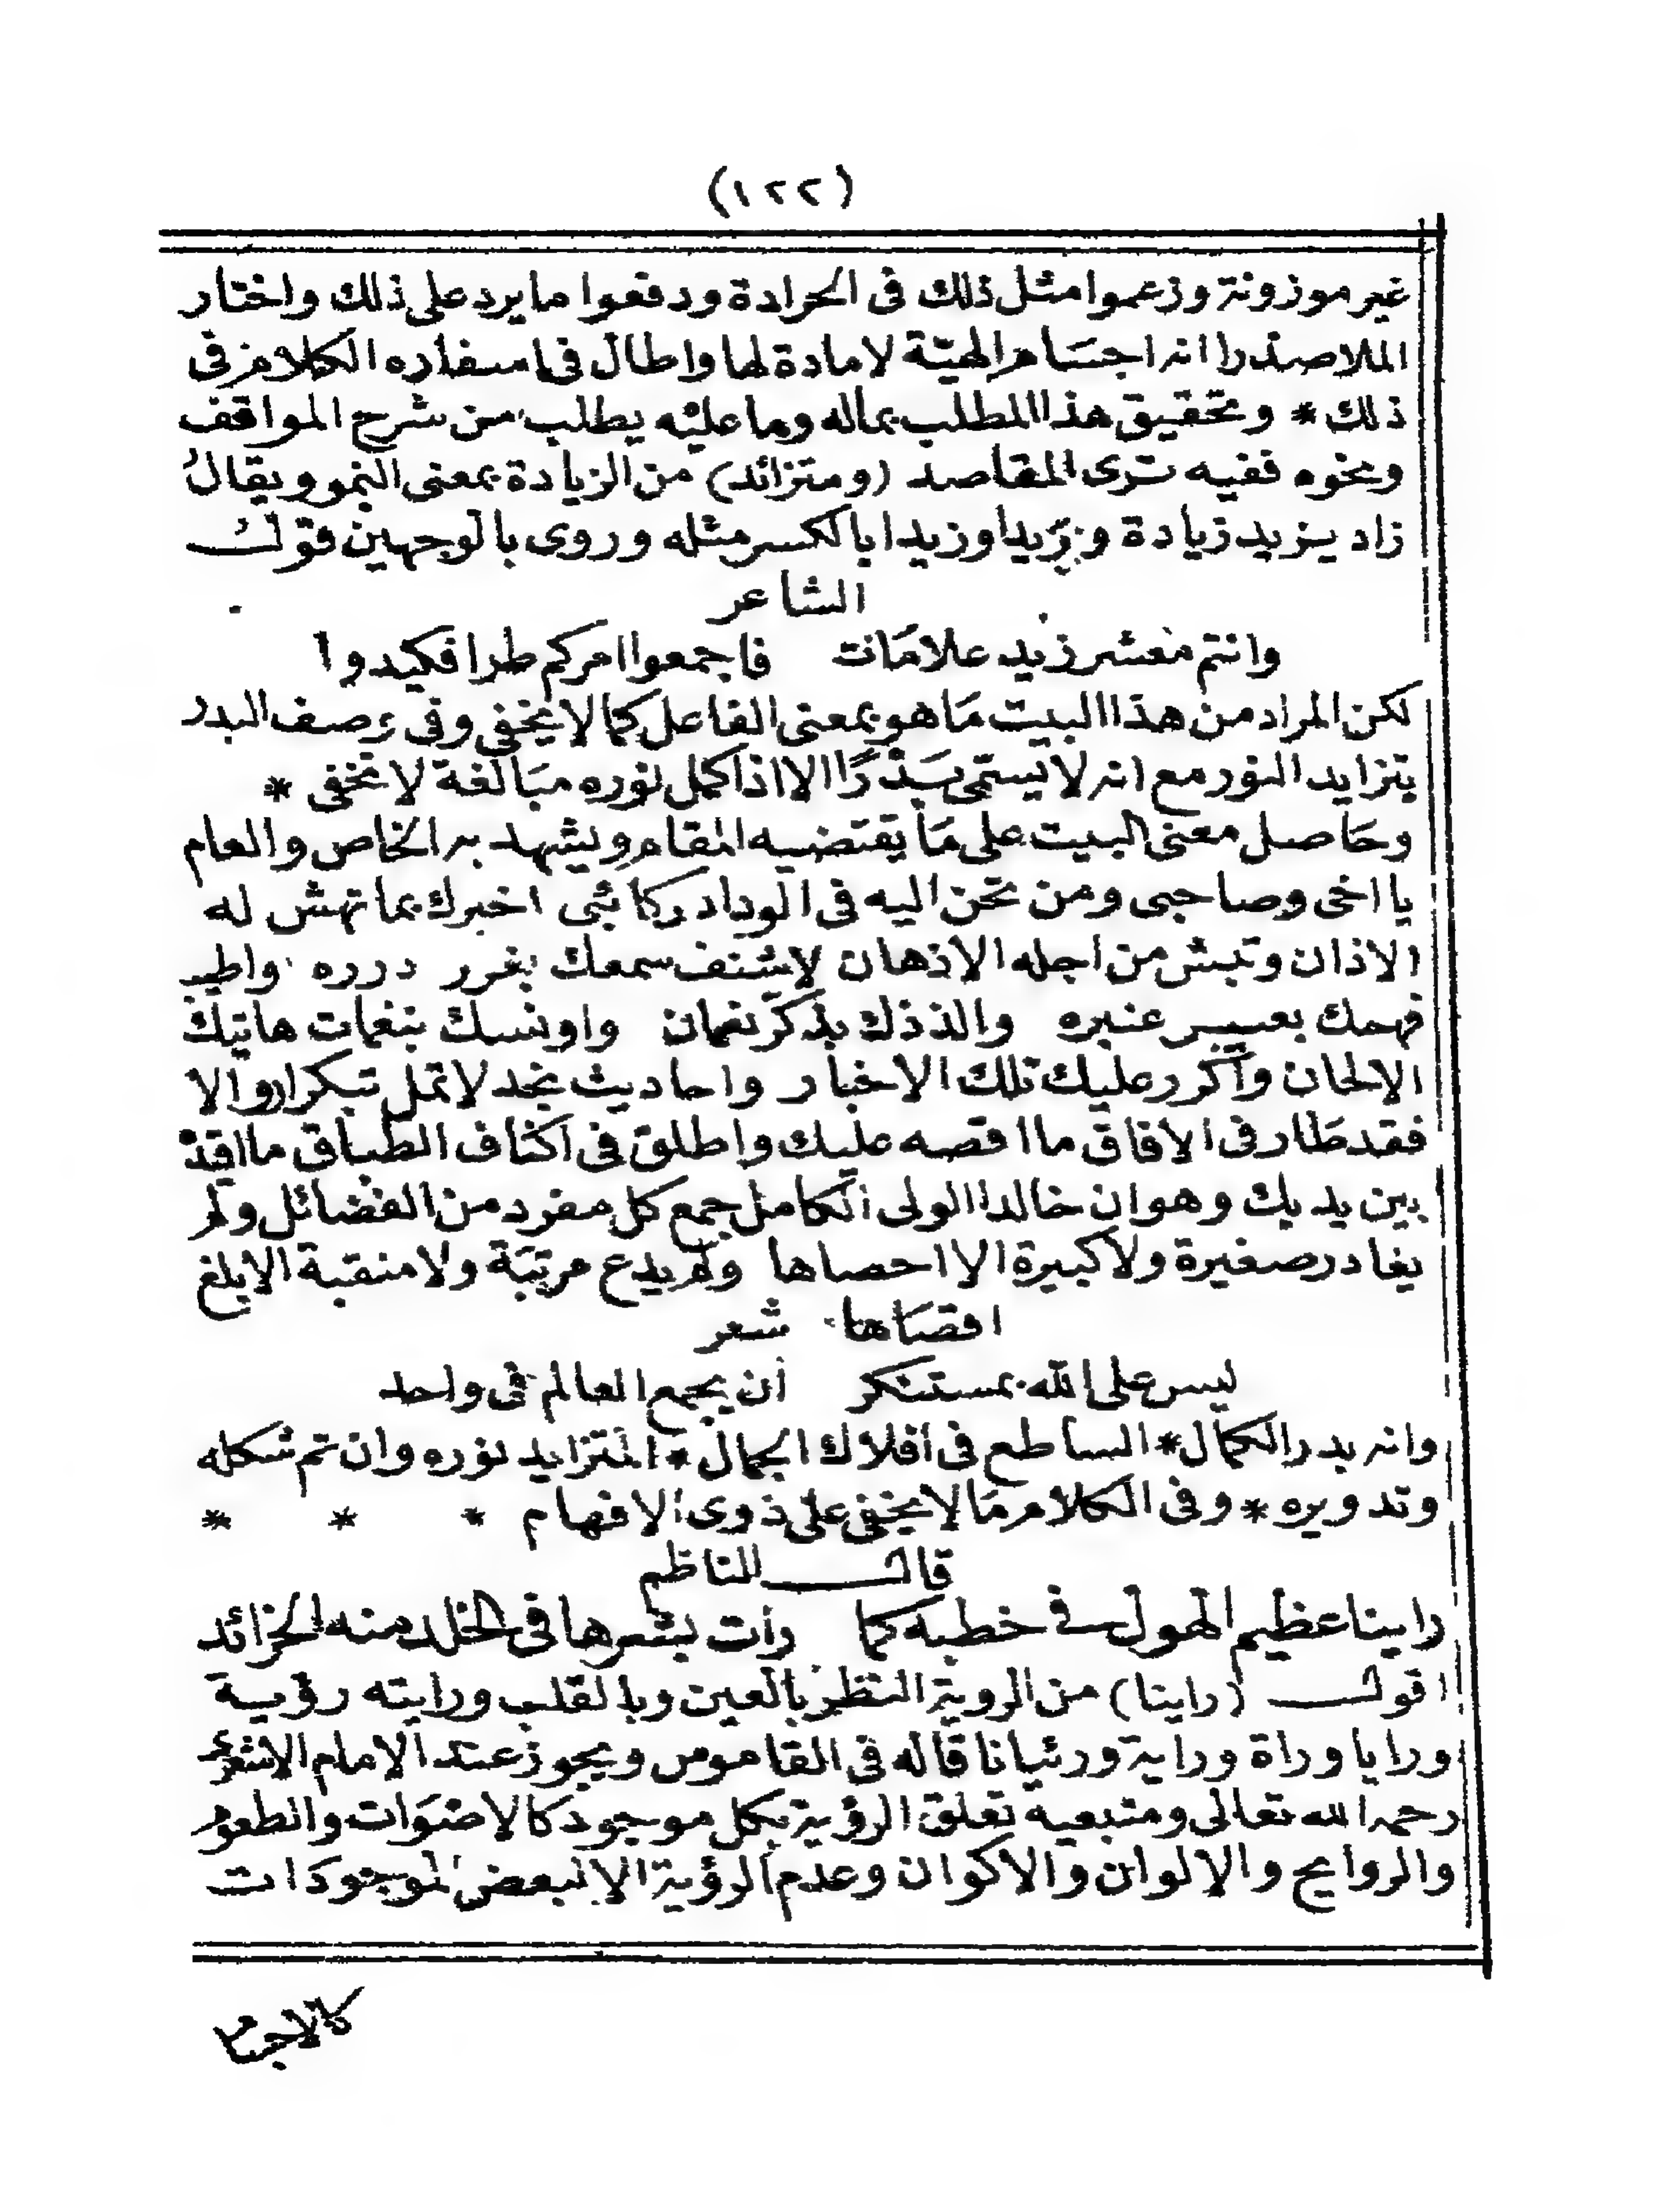 (١٢٢)
غير موزونة وزعموا مثل ذلك فى الحرادة ودفعوا ما يرد على ذلك واختار
الملا صدرا انه اجسام الهيّة لا مادة لها واطال فى اسفاره الكلام فى
ذلك * وتحقيق هذا المطلب بماله وما عليه يطلب من شرح المواقف
ونحوه ففيه ترى المقاصد (ومتزائد) من الزيادة بمعنى النمو ويقال
زاد يزيد زيادة وزَيدا وزيدا بالكسر مثله وروى بالوجهين قول
الشاعر
وانتم معشر زيد علا مائت فاجمعوا امركم طرا فكيدوا
لكن المراد من هذا البيت مَا هو بمعنى الفاعل كما لا يخفى وفى وصف البدر
بتزايد النور مع انه لا يسمى بَدْرًا الا اذا كمل نوره مبَالغة لا تخفى *
وحَاصل معنى البيت على مَا يقتضيه المقام ويشهد به الخاص والعام
يا اخى وصاحبى ومن تحن اليه فى الوداد ركائبى اخبرك بما تهش له
الاذان وتبش من اجله الاذهان لاشنف سمعك بغرر درره واطيب
فهمك بعبير عنبره والذذك بذكر نعمان واونسك بنغمات هاتيك
الالحان وأكرر عليك تلك الاخبار واحاديث نجد لا تمل بتكرار والا
فقد طَار فى الافاق ما اقصه عليك واطلق فى اكناف الطباق ما اقيد
بين يديك وهو ان خالدا الولى الكامل جمع كل مفرد من الفضائل ولم
يغادر صغيرة ولا كبيرة الا احصاها ولم يدع مرتبَة ولا منقبة الا بلغ
اقصَاها شعر
ليس على الله بمستنكر ان يجمع العالم فى واحد
وانه بدر الكمال * الساطع فى افلاك الجمال * المتزايد نوره وان تم شكله
وتدويره * وفى الكلام مَا لا يخفى على ذوى الافهام * * *
قال الناظم
راينا عظيم الهول فى خطبه كما رأت بشرها فى الخلد منه الخرائد
اقول (راينا) من الروية النظر بالعين وبالقلب ورايته رؤية
ورايا وراة وراية ورئيانا قاله فى القاموس ويجوز عند الامام الاشعرى
رحمه الله تعالى ومتبعيه تعلق الرؤية بكل موجود كالاصْوَات والطعوم
والروايح والالوان والاكوان وعدم الرؤية الا لبعض الموجودات
كالاجرام